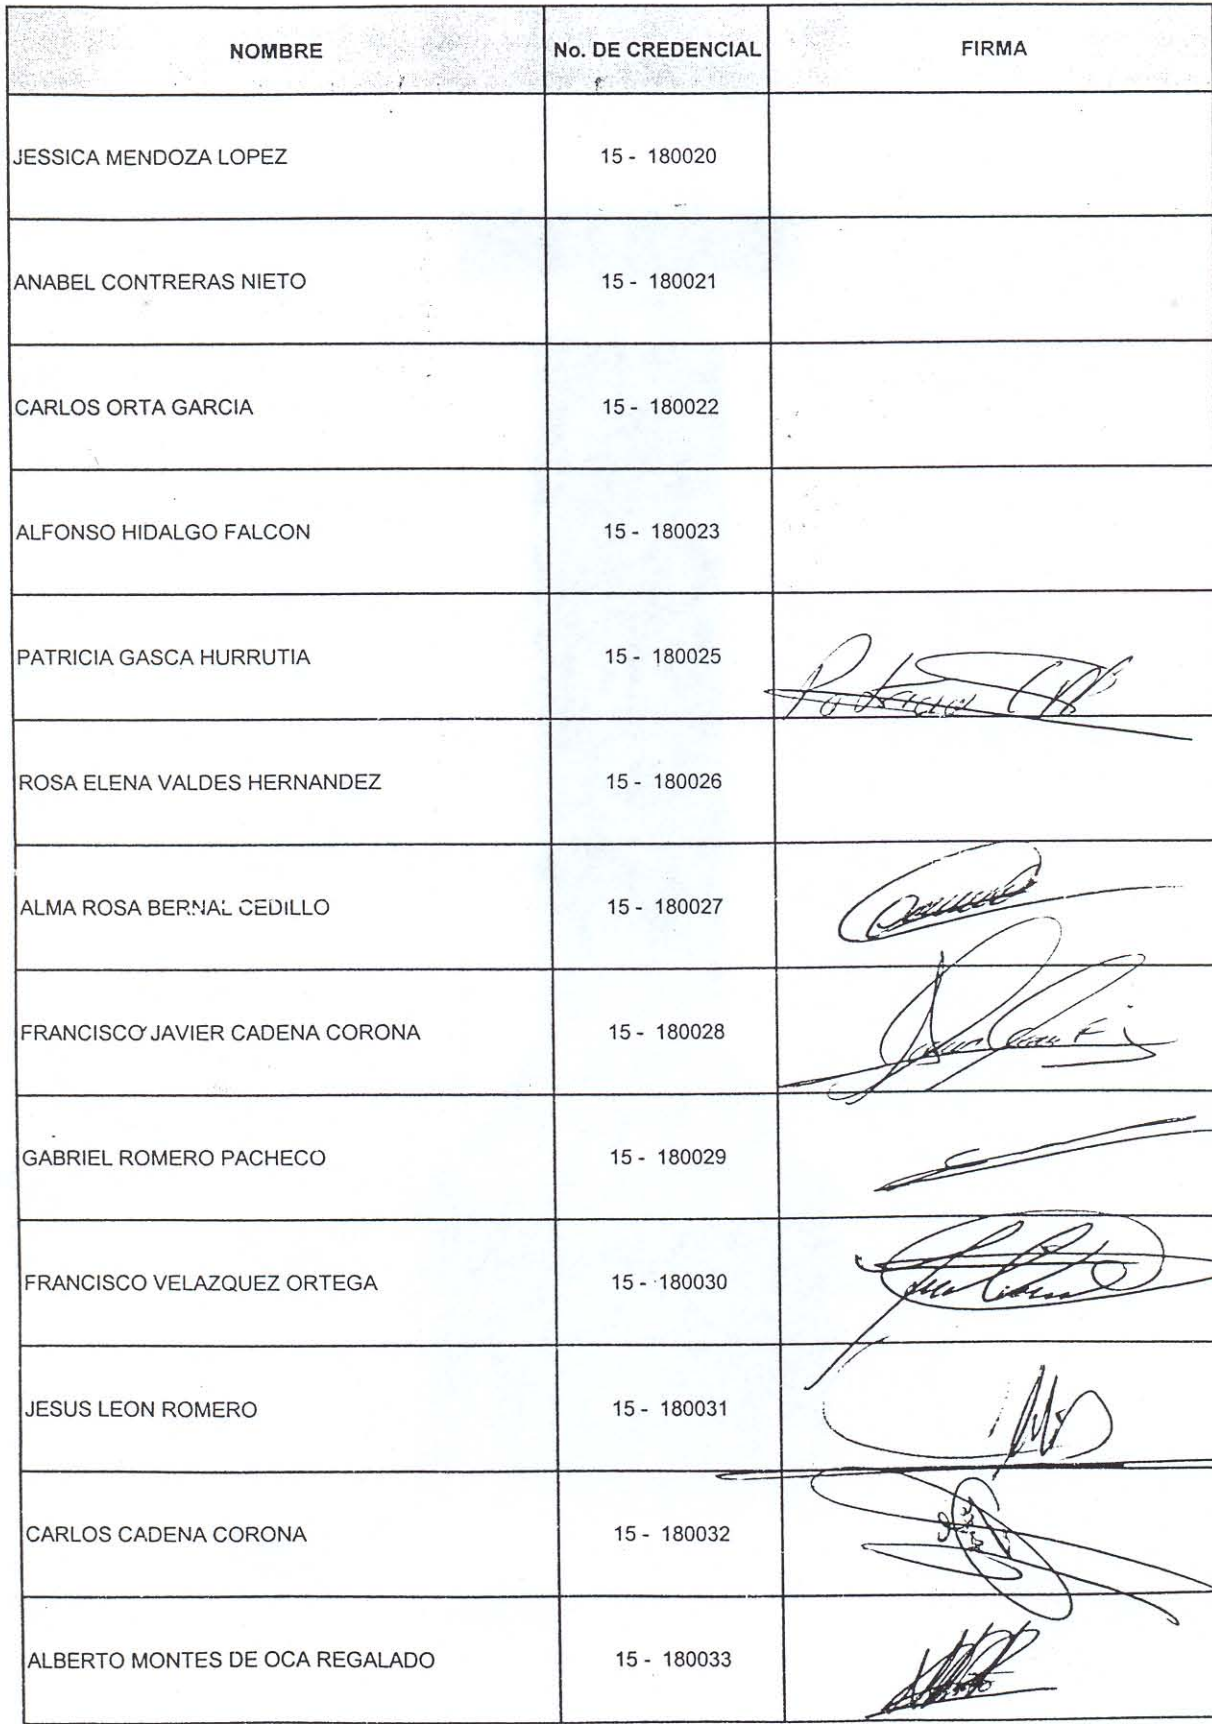 NOMBRE No. DE CREDENCIAL FIRMA
JESSICA MENDOZA LOPEZ 15 - 180020
ANABEL CONTRERAS NIETO 15 - 180021
CARLOS ORTA GARCIA 15 - 180022
ALFONSO HIDALGO FALCON 15 - 180023
PATRICIA GASCA HURRUTIA 15 - 180025 Patricia
ROSA ELENA VALDES HERNANDEZ 15 - 180026
ALMA ROSA BERNAL CEDILLO 15 - 180027
FRANCISCO JAVIER CADENA CORONA 15 - 180028
GABRIEL ROMERO PACHECO 15 - 180029
FRANCISCO VELAZQUEZ ORTEGA 15 - 180030
JESUS LEON ROMERO 15 - 180031
CARLOS CADENA CORONA 15 - 180032
ALBERTO MONTES DE OCA REGALADO 15 - 180033